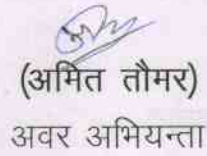 (अमित तौमर)
अवर अभियन्ता